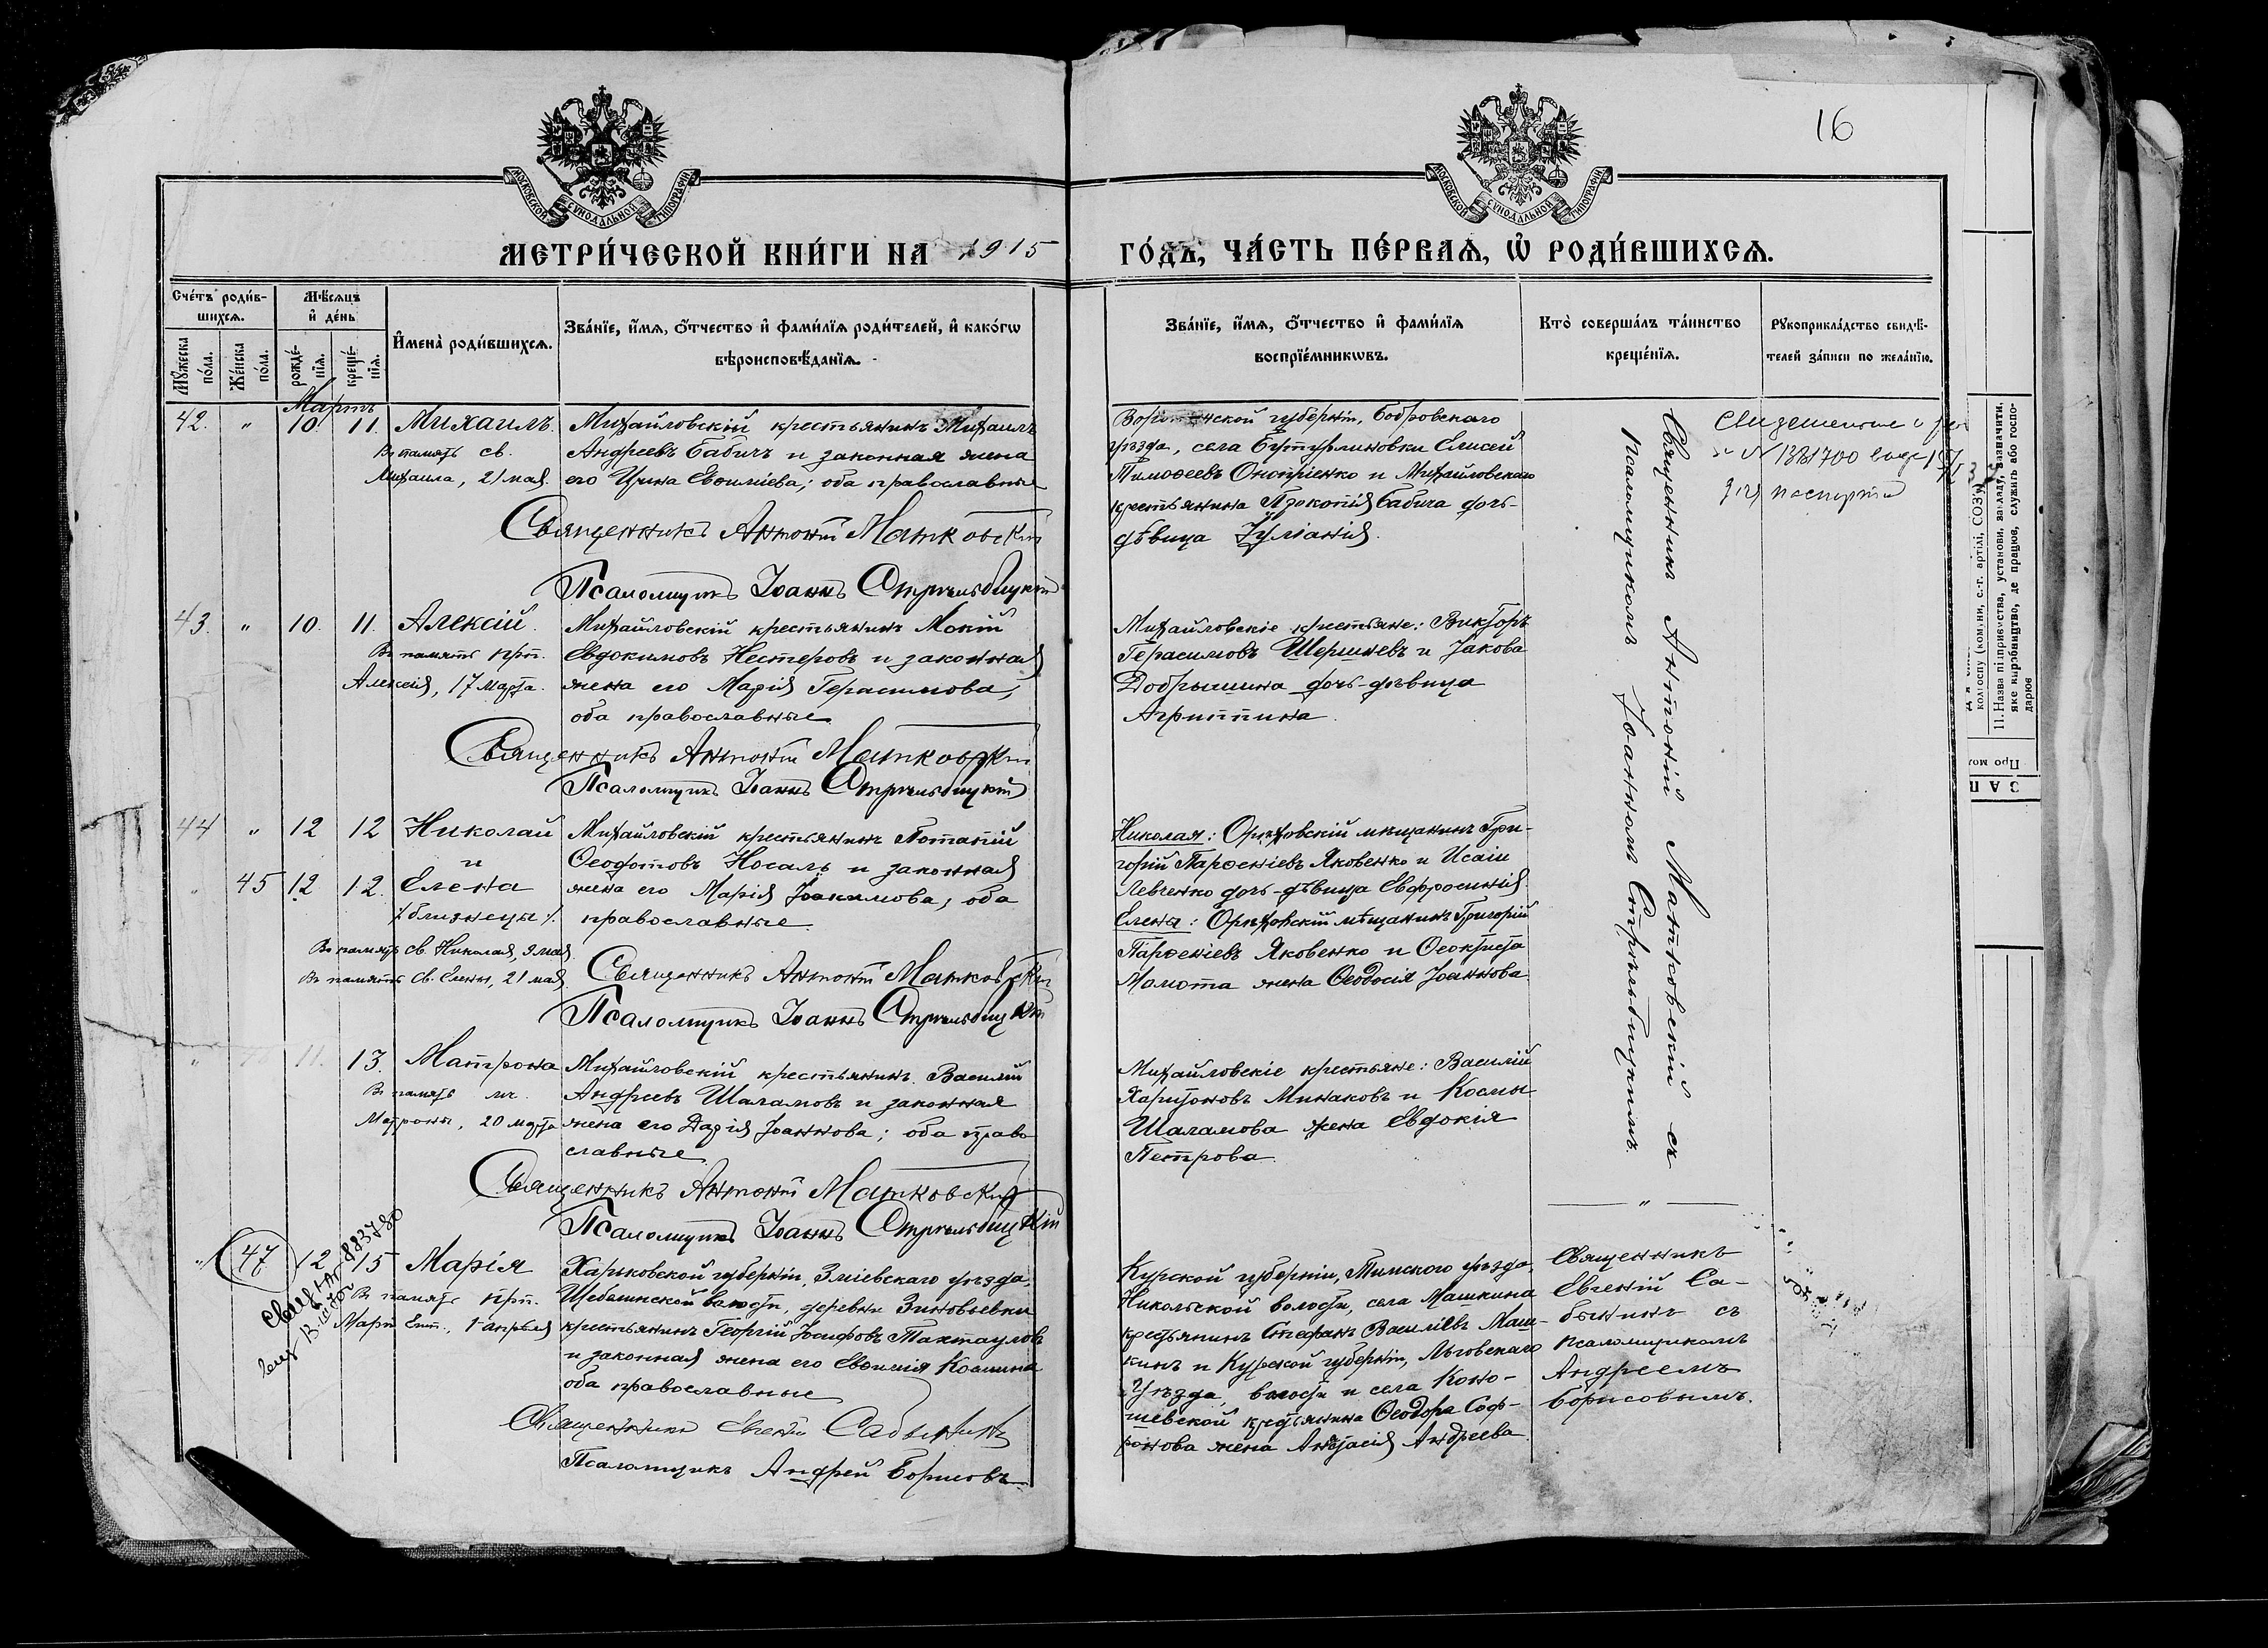 16
МОСКОВСКОЙ СУНОДАЛЬНОЙ ТИПОГРАФІИ
МОСКОВСКОЙ СУНОДАЛЬНОЙ ТИПОГРАФІИ
МЕТРИ́ЧЕСКОЙ КНИ́ГИ НА 1915
ГО́ДЪ, ЧА́СТЬ ПЕ́РВАѦ, Ѽ РОДИ́ВШИХСѦ.
Сче́тъ роди́в-
шихсѧ.
Мꙋ́жеска по́ла.
Же́нска по́ла.
Мѣ́сѧцъ
и҆ де́нь
рожде́-
нїѧ.
креще́-
нїѧ.
И҆мена̀ роди́вшихсѧ.
Зва́нїе, и҆́мѧ, ѻ҆́тчество и҆ фами́лїѧ роди́телей, и҆ како́гѡ
вѣроисповѣ́данїѧ.
Зва́нїе, и҆́мѧ, ѻ҆́тчество и҆ фами́лїѧ
воспрїе́мникѡвъ.
Кто̀ соверша́лъ та́инство
креще́нїѧ.
Рꙋкоприкла́дство свидѣ́-
телей за́писи по жела́нїю.
Мартъ
42. " 10. 11. Михаилъ.
Въ память св.
Михаила, 21 мая.
Михайловскій крестьянинъ Михаилъ
Андреевъ Бабичъ и законная жена
его Ирина Евѳиміева; оба православные
Священникъ Антоній Матковскій
Псаломщикъ Іоаннъ Стрѣльбицкій
Воронежской губерніи, Бобровскаго
уѣзда, села Бутурлиновки Елисей
Тимоѳеевъ Оноприенко и Михайловскаго
крестьянина Прокопія Бабича дочь-
дѣвица Іуліанія.
Священникъ Антоній Матковскій съ
псаломщикомъ Іоанномъ Стрѣльбицкимъ.
43. " 10. 11. Алексій.
Въ память прп.
Алексія, 17 Марта.
Михайловскій крестьянинъ Мокій
Евдокимовъ Нестеровъ и законная
жена его Марія Герасимова,
оба православные
Священникъ Антоній Матковскій
Псаломщикъ Іоаннъ Стрѣльбицкій
Михайловскіе крестьяне: Викторъ
Герасимовъ Шершневъ и Іакова
Добрышина дочь-дѣвица
Агриппина.
44 " 12 12 Николай
и
" 45 12 12. Елена
/близнецы/.
Въ память св. Николая, 9 мая
Въ память св. Елены, 21 мая
Михайловскій крестьянинъ Потапій
Ѳеодотовъ Носаль и законная
жена его Марія Іоакимова, оба
православные.
Священникъ Антоній Матковскій
Псаломщикъ Іоаннъ Стрѣльбицкій
Николая: Орѣховскій мѣщанинъ Гри-
горій Парѳеніевъ Яковенко и Исаіи
Левченко дочь-дѣвица Евфросинія.
Елены: Орѣховскій мѣщанинъ Григорій
Парѳеніевъ Яковенко и Ѳеоктиста
Мамота жена Ѳеодосія Іоаннова
" 11. 13. Матрона
Въ память мч.
Матроны, 20 марта
Михайловскій крестьянинъ Василій
Андреевъ Шаламовъ и законная
жена его Дарія Іоаннова; оба право
славные
Священникъ Антоній Матковскій
Псаломщикъ Іоаннъ Стрѣльбицкій
Михайловскіе крестьяне: Василій
Харитоновъ Минаковъ и Космы
Шаламова жена Евдокія
Петрова.
"
" 47 12 15 Марія
Въ память прп.
Маріи Егип., 1 апрѣля
Харьковской губерніи, Зміевскаго уѣзда,
Шебелинской волости, деревни Зиновьевки
крестьянинъ Георгій Іосифовъ Тахтауловъ
и законная жена его Евѳимія Космина
оба православные
Священникъ Евгеній Сабынинъ
Псаломщикъ Андрей Борисовъ
Курской губерніи, Тимского уѣзда,
Никольской волости, села Машкина
крестьянинъ Стефанъ Василіевъ Маш-
кинъ и Курской губерніи, Льговскаго
уѣзда, волости и села Коно-
шевской крестьянина Ѳеодора Соф-
ронова жена Анастасія Андреева.
Священникъ
Евгеній Са-
бынинъ съ
псаломщикомъ
Андреемъ
Борисовымъ.
11. Назва підприємства, установи, закладу, зазначити,
яке виробництво, де працює, служить або госпо-
дарює